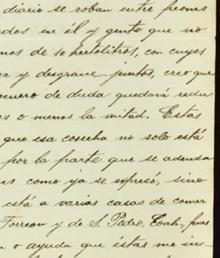 diario se roban entre peones
ados en él y gente que no
mos de 50 hectolitros, con cuyos
ca y desgrave juntos, creo que
género de duda quedará redu
es o menos la mitad. Estas
que esa cosecha no solo está
por la parte que se adeuda
es como ya se expresó, sino
está a varias casas de comer
Torreon y de S. Pedro, Coah., pues
n o ayuda que éstas me in-